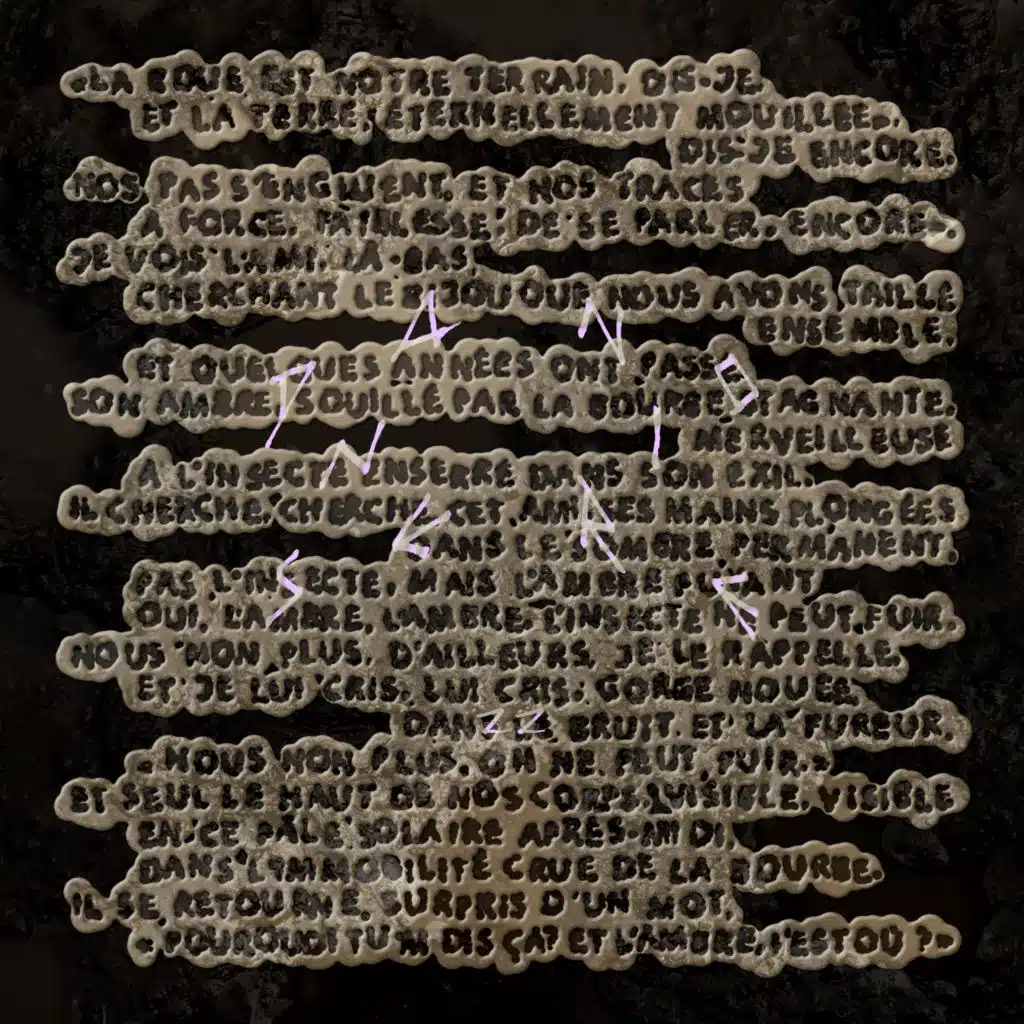 «LA BOUE EST NOTRE TERRAIN, DIS-JE,
ET LA TERRE, ÉTERNELLEMENT MOUILLÉE»,
DIS-JE ENCORE.
NOS PAS S'ENGLUENT, ET NOS TRACES
À FORCE, FAIBLESSE, DE SE PARLER, ENCORE».
JE VOIS L'AMI, LÀ-BAS
CHERCHANT LE BIJOU QUE NOUS AVONS TAILLÉ
ENSEMBLE,
ET QUELQUES ANNÉES ONT PASSÉ
SON AMBRE SOUILLÉ PAR LA BOURBE STAGNANTE.
MERVEILLEUSE
À L'INSECTE ENSERRÉ DANS SON EXIL.
IL CHERCHE, CHERCHE CET AMI, SES MAINS PLONGÉES
DANS LE SOMBRE PERMANENT.
PAS L'INSECTE, MAIS L'AMBRE
OUI, L'AMBRE, L'AMBRE, L'INSECTE NE PEUT FUIR,
NOUS NON PLUS, D'AILLEURS, JE LE RAPPELLE,
ET JE LUI CRIS, LUI CRIS, GORGE NOUÉE,
DANS LE BRUIT ET LA FUREUR,
«NOUS NON PLUS, ON NE PEUT FUIR.»
ET SEUL LE HAUT DE NOS CORPS, VISIBLE, VISIBLE
EN CE PÂLE SOLAIRE APRÈS-MIDI
DANS L'IMMOBILITÉ CRUE DE LA BOURBE.
IL SE RETOURNE, SURPRIS D'UN MOT,
«POURQUOI TU M'DIS ÇA? ET L'AMBRE, L'EST OÙ ?»